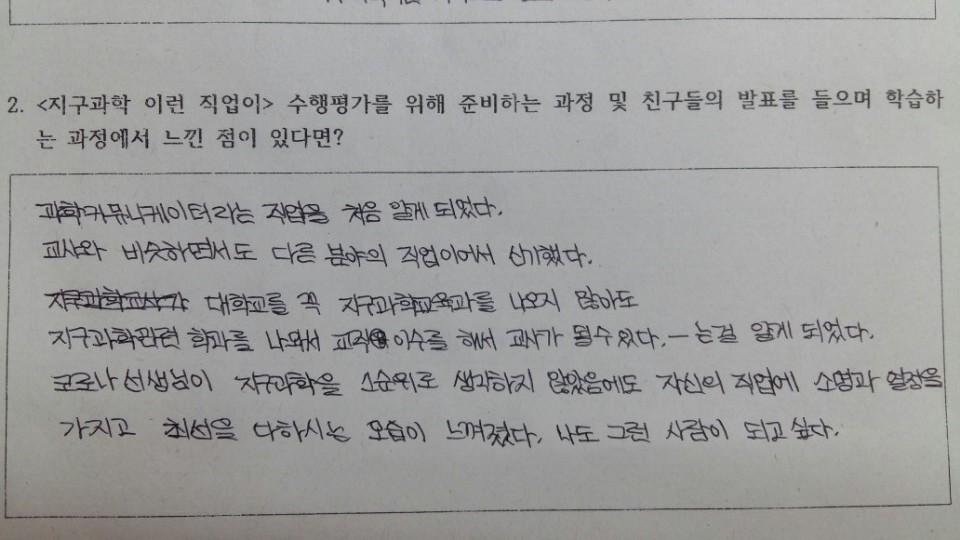 2. <지구과학 이런 직업이> 수행평가를 위해 준비하는 과정 및 친구들의 발표를 들으며 학습하
는 과정에서 느낀 점이 있다면?
과학커뮤니케이터라는 직업을 처음 알게 되었다.
교사와 비슷하면서도 다른 분야의 직업이어서 신기했다.
지구과학교사가 대학교를 꼭 지구과학교육과를 나오지 않아도
지구과학관련 학과를 나와서 교직이수를 해서 교사가 될수있다. - 는걸 알게 되었다.
코로나 선생님이 지구과학을 1순위로 생각하지 않았음에도 자신의 직업에 소명과 열정을
가지고 최선을 다하시는 모습이 느껴졌다. 나도 그런 사람이 되고싶다.